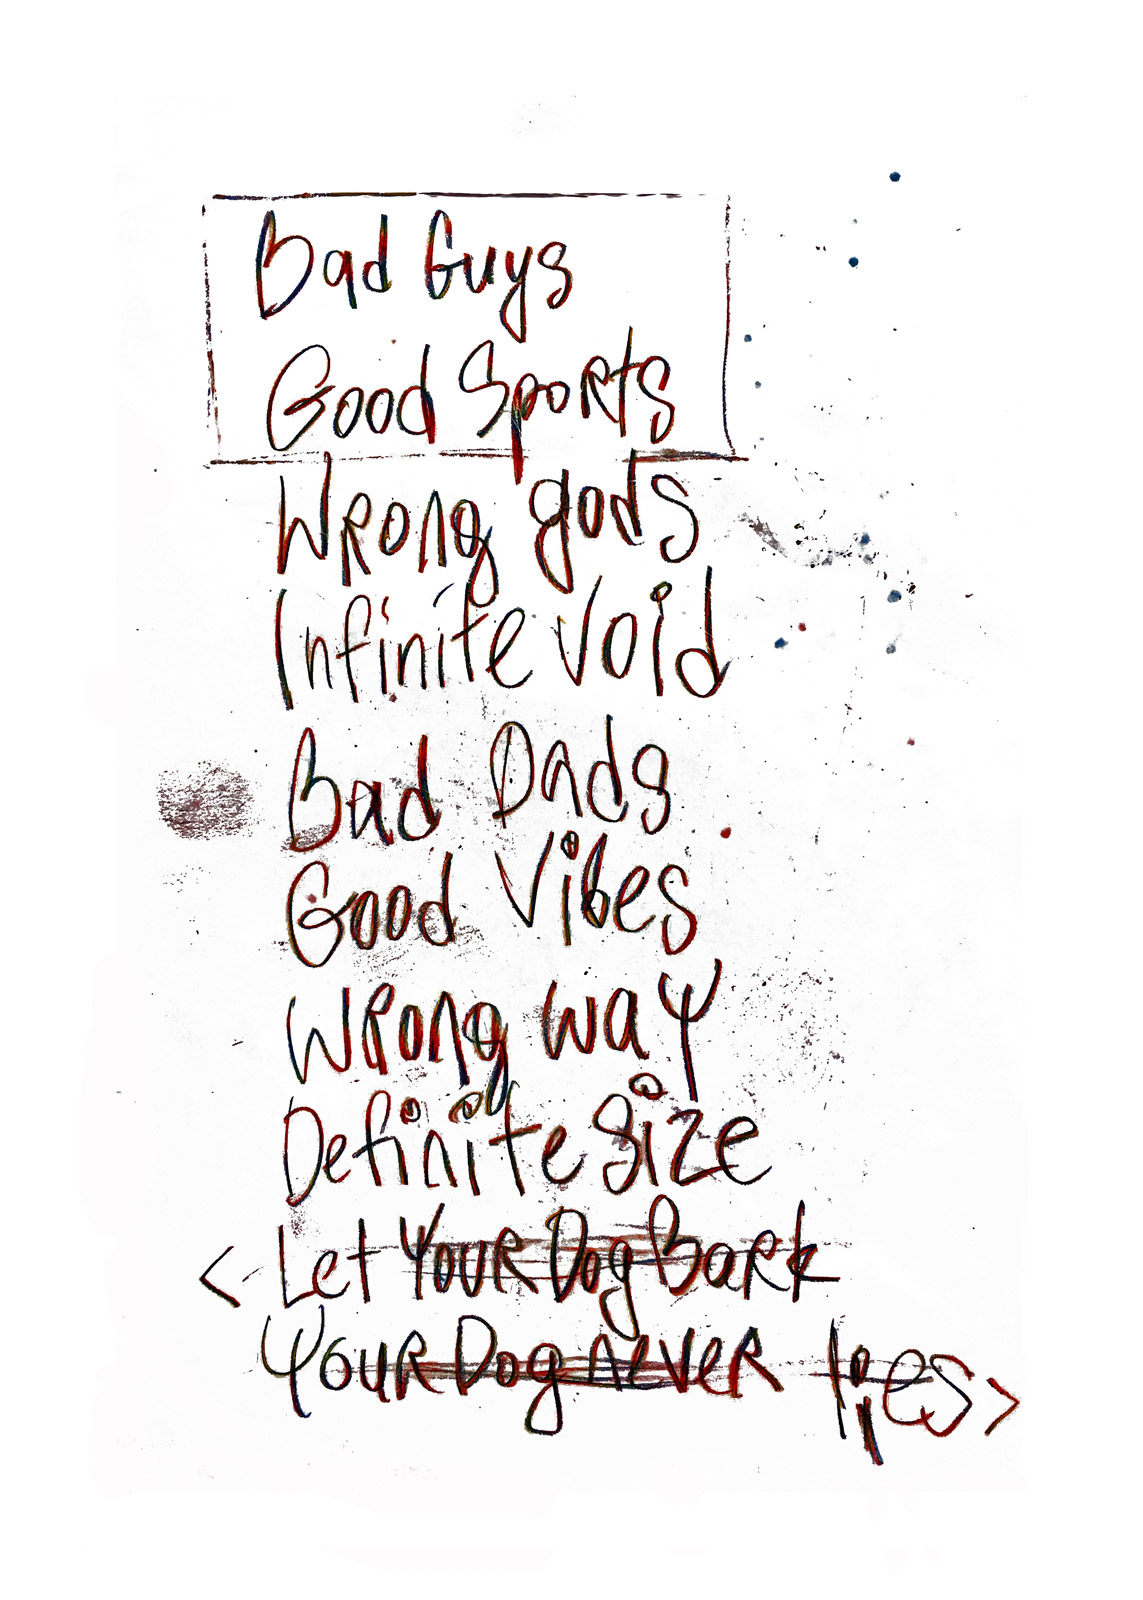 Bad Guys
Good Sports
Wrong gods
Infinite void
Bad Dads
Good Vibes
Wrong way
Definite size
< Let Your Dog Bark
Your Dog never lies >